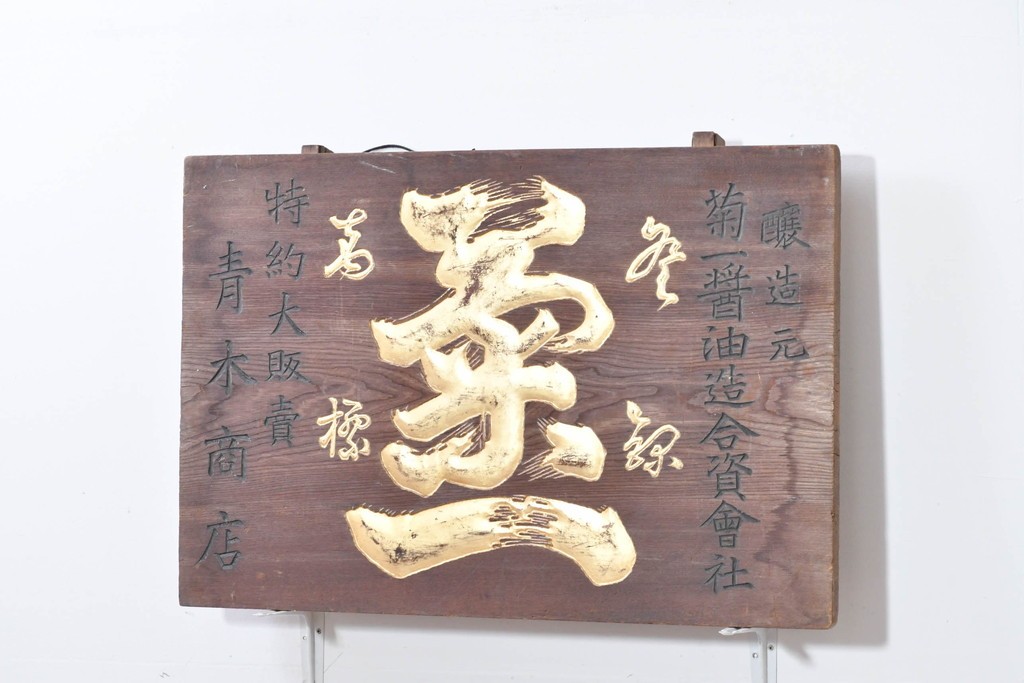 釀造元
菊一醬油造合資會社
登録
菊一
商標
特約大販賣
青木商店